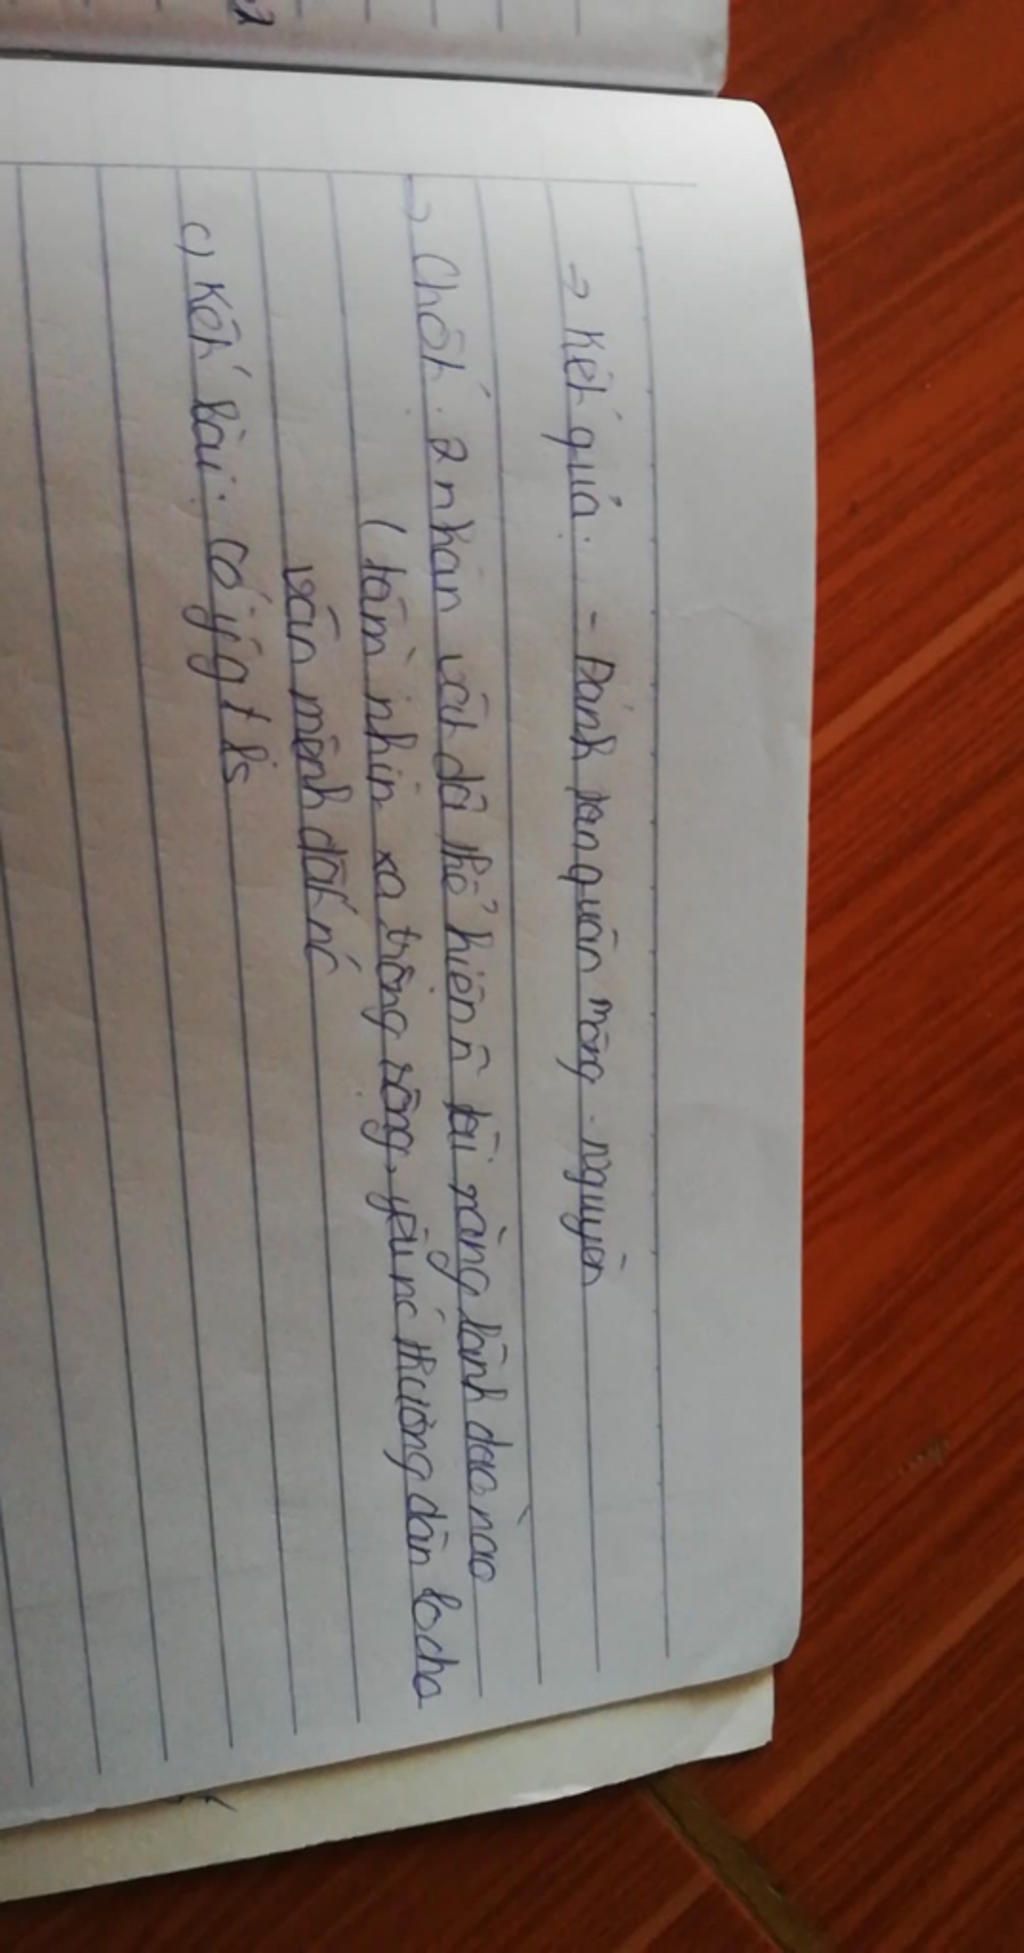 → Kết quả: - Đánh tan quân mông - nguyên
→ Chốt: 2 nhân vật đã thể hiện tài năng lãnh đạo nào
( tầm nhìn xa trông rộng, yêu nc thương dân lo cho
vận mệnh đất nc
c) Kết bài: có ý g t ls